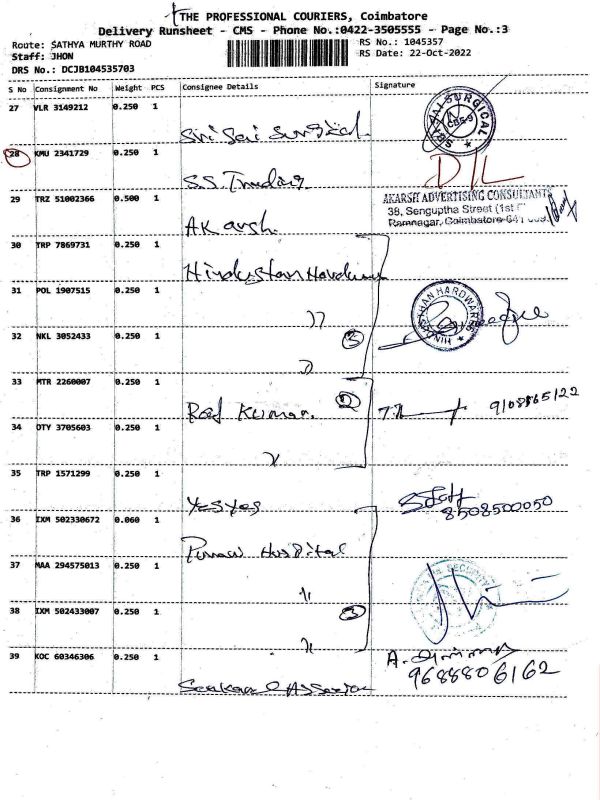 THE PROFESSIONAL COURIERS, Coimbatore
Delivery Runsheet - CMS - Phone No.:0422-3505555 - Page No.:3
Route: SATHYA MURTHY ROAD
RS No.: 1045357
Staff: JHON
RS Date: 22-Oct-2022
DRS No.: DCJB104535703
S No Consignment No Weight PCS Consignee Details Signature
27 VLR 3149212 0.250 1
Siri Sai Surgical
SRI SAI SURGICAL
CBE-9
28 KMU 2341729 0.250 1
S.S. Trading
D/L
29 TRZ 51002366 0.500 1
AKarsh
AKARSH ADVERTISING CONSULTANTS
38, Senguptha Street (1st
Ramnagar, Coimbatore-641 009
30 TRP 7869731 0.250 1
Hindustan Hardware
31 POL 1907515 0.250 1
〃
HINDUSTHAN HARDWARES
32 NKL 3052433 0.250 1
3
〃
33 MTR 2260007 0.250 1
Raj Kumar 2
9108865122
34 OTY 3705603 0.250 1
〃
35 TRP 1571299 0.250 1
Yes yes
Staff
8508500050
36 IXM 502330672 0.060 1
Hospital
37 MAA 294575013 0.250 1
〃
SECURITY
38 IXM 502433007 0.250 1
3
〃
39 KOC 60346306 0.250 1
A.
9688806162